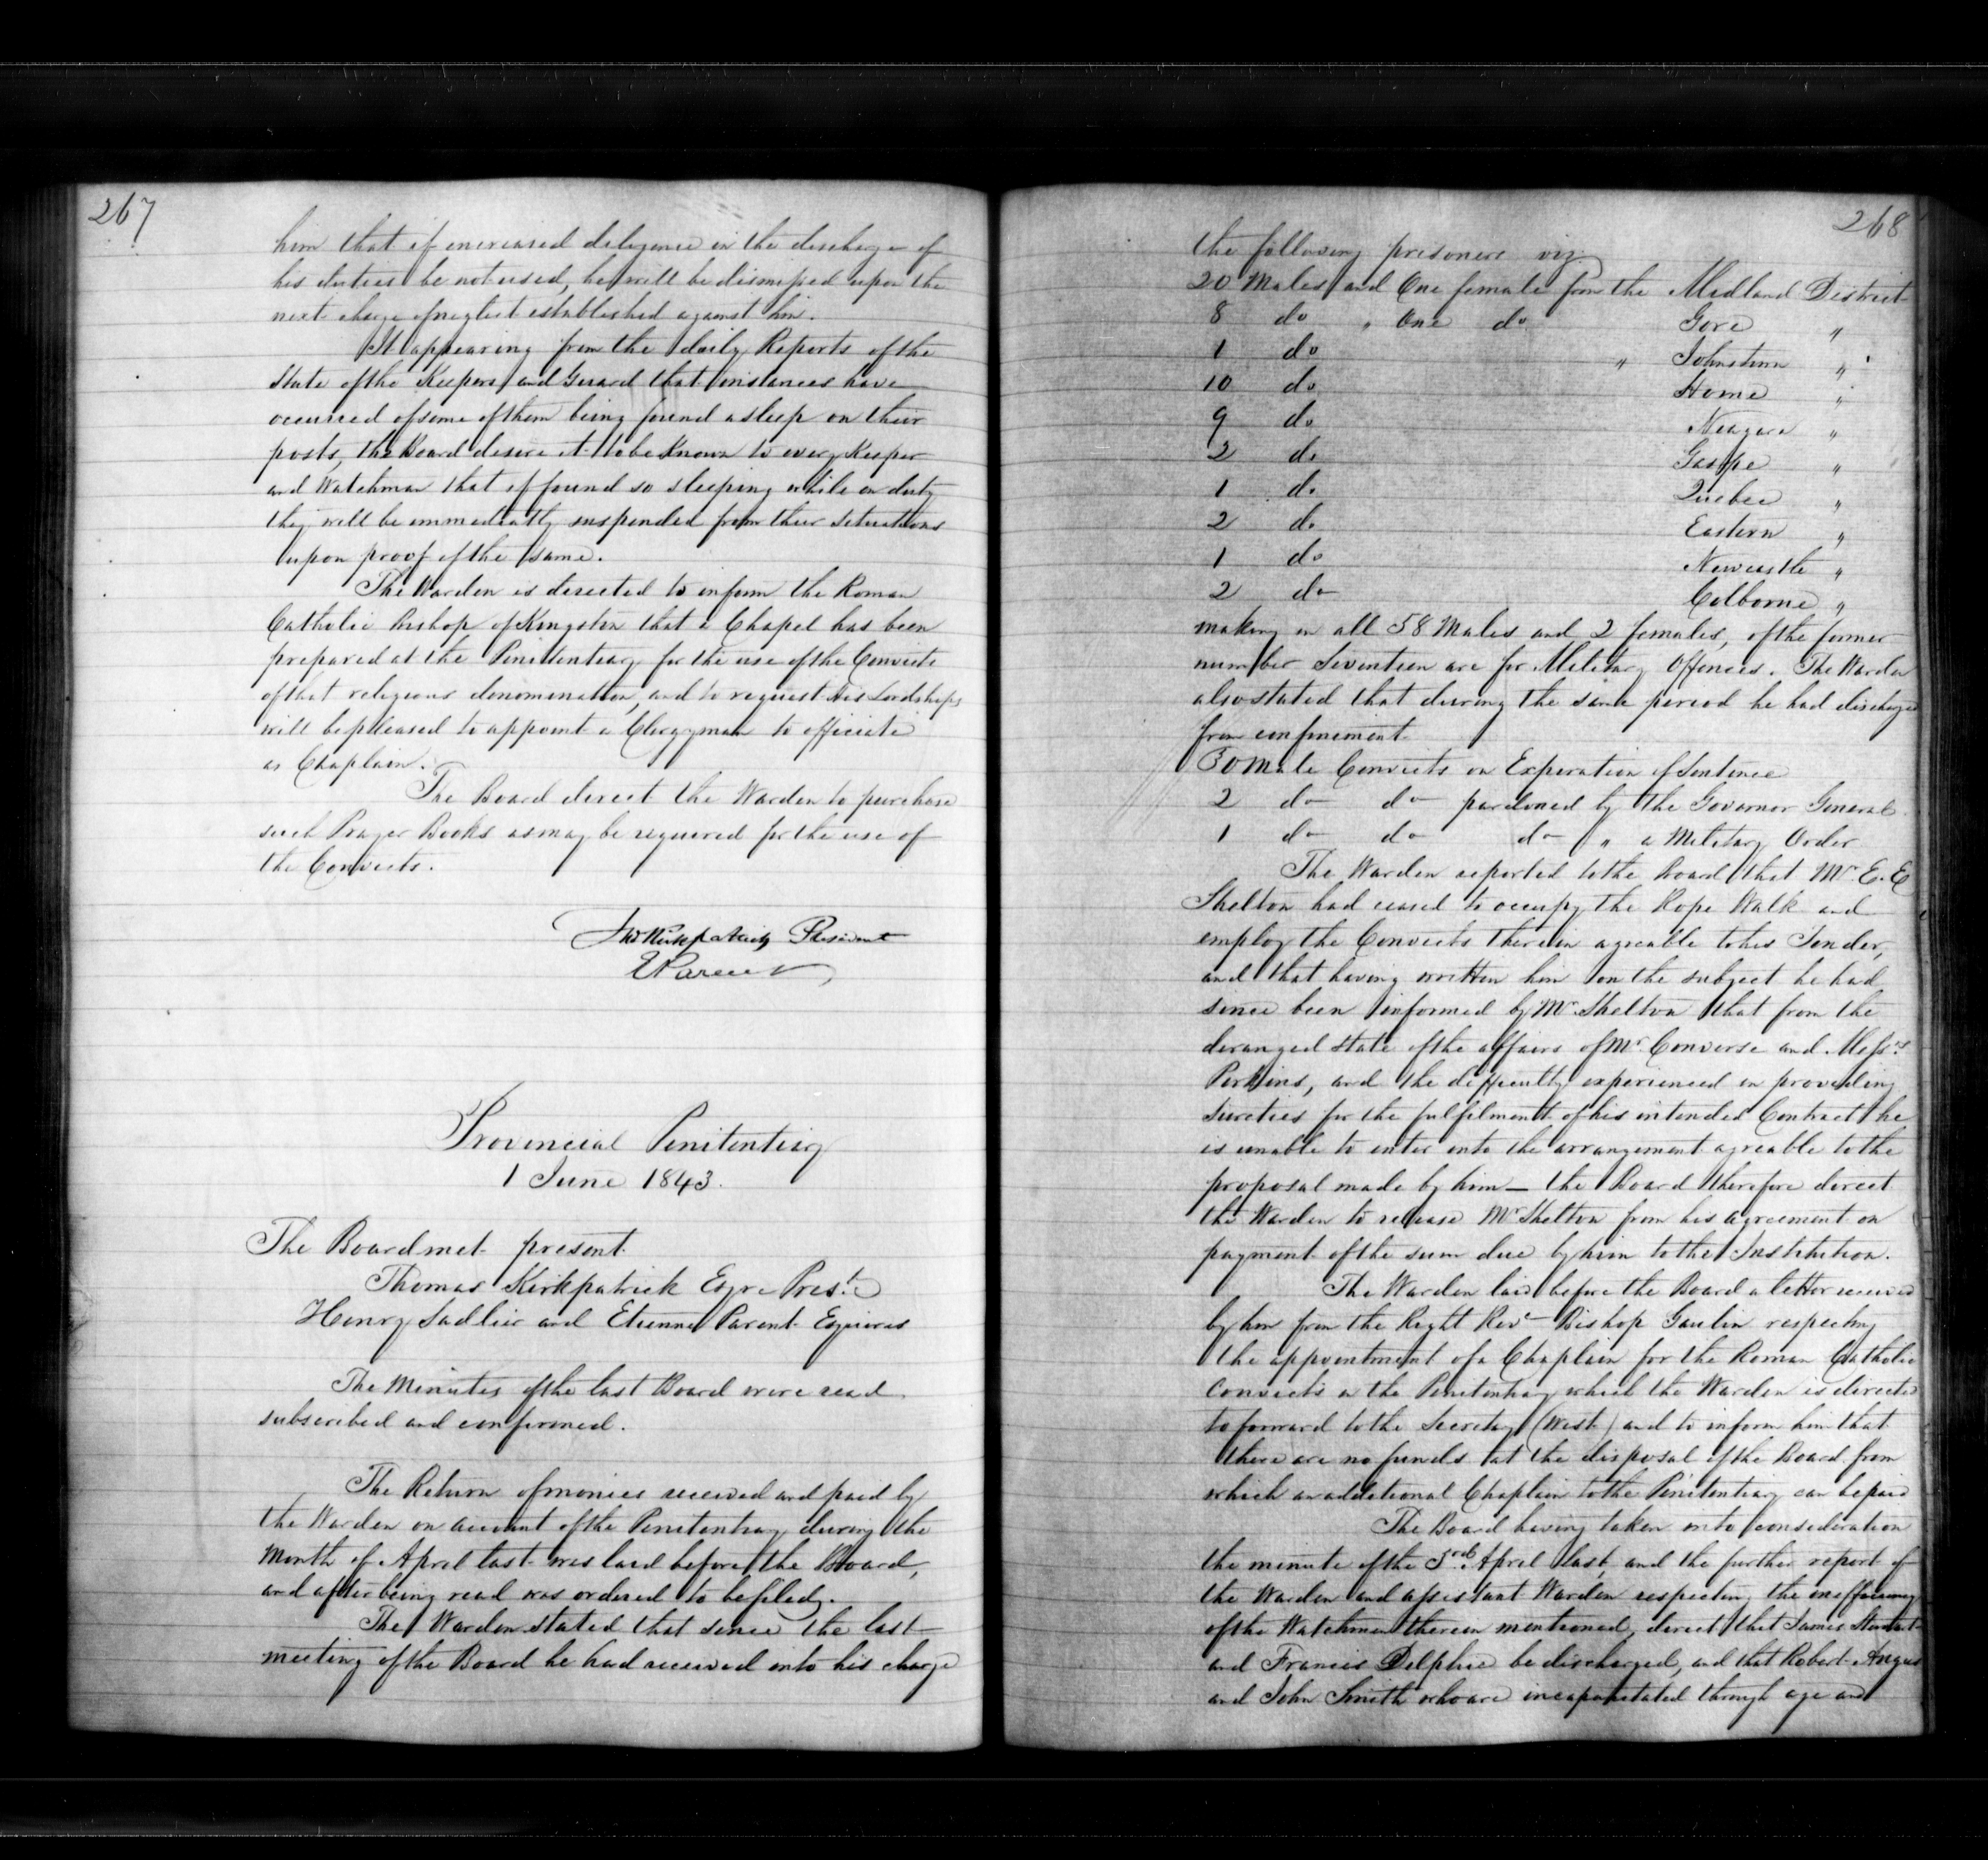 267
him that if increased diligence in the discharge of
his duties be not used, he will be dismissed upon the
next charge of neglect established against him.
It appearing from the daily Reports of the
State of the Keepers and Guard that instances have
occurred of some of them being found asleep on their
posts, the Board desire it to be Known to every Keeper
and Watchman that if found so sleeping while on duty
they will be immediatly suspended from their situations
upon proof of the same.
The Warden is directed to inform the Roman
Catholic Bishop of Kingston that a Chapel has been
prepared at the Penitentiary for the use of the Convicts
of that religious denomination, and to request His Lordship
will be pleased to appoint a Clergyman to officiate
as Chaplain.
The Board direct the Warden to purchase
such Prayer Books as may be required for the use of
the Convicts.
Thos Kirkpatrick President
E Parent
Provincial Penitentiary
1 June 1843.
The Board met present
Thomas Kirkpatrick Esqre Prest.
Henry Sadlier and Etienne Parent Esquires
The Minutes of the last Board were read
subscribed and confirmed.
The Return of monies received and paid by
the Warden on account of the Penitentiary during the
Month of April last was laid before the Board,
and after being read was ordered to be filed.
The Warden stated that since the last
meeting of the Board he had received into his charge
268
the following prisoners viz
20 Males and One female from the Midland District
8 do " One do Gore "
1 do " Johnstown "
10 do Home "
9 do Niagara "
2 do Gaspe "
1 do Quebec "
2 do Eastern "
1 do Newcastle "
2 do Colborne "
making in all 58 Males and 2 females, of the former
number Seventeen are for Military Offences. The Warden
also stated that during the same period he had discharged
from confinement
30 Male Convicts on Expiration of Sentence
2 do do pardoned by the Governor General.
1 do do do " a Military Order
The Warden reported to the Board that Mr. E. E
Shelton had ceased to occupy the Rope Walk and
employ the Convicts therein agreable to his Tender,
and that having written him on the subject he had
since been informed by Mr. Shelton that from the
deranged state of the affairs of Mr. Converse and Messrs
Perkins, and the difficulty experienced in providing
Sureties for the fulfilment of his intended Contract he
is unable to enter into the arrangement agreable to the
proposal made by him – the Board therefore direct
the Warden to release Mr Shelton from his agreement on
payment of the sum due by him to the Institution.
The Warden laid before the Board a letter received
by him from the Right Revd Bishop Gaulin respecting
the appointment of a Chaplain for the Roman Catholic
Convicts in the Penitentiary which the Warden is directed
to forward to the Secretary (West) and to inform him that
there are no funds at the disposal of the Board from
which an additional Chaplain to the Penitentiary can be paid
The Board having taken into consideration
the minute of the 3rd April last, and the further report of
the Warden and assistant Warden respecting the inefficiency
of the Watchmen therein mentioned, direct that James Stewart
and Francis Delphie be discharged, and that Robert Angus
and John Smith who are incapacitated through age and